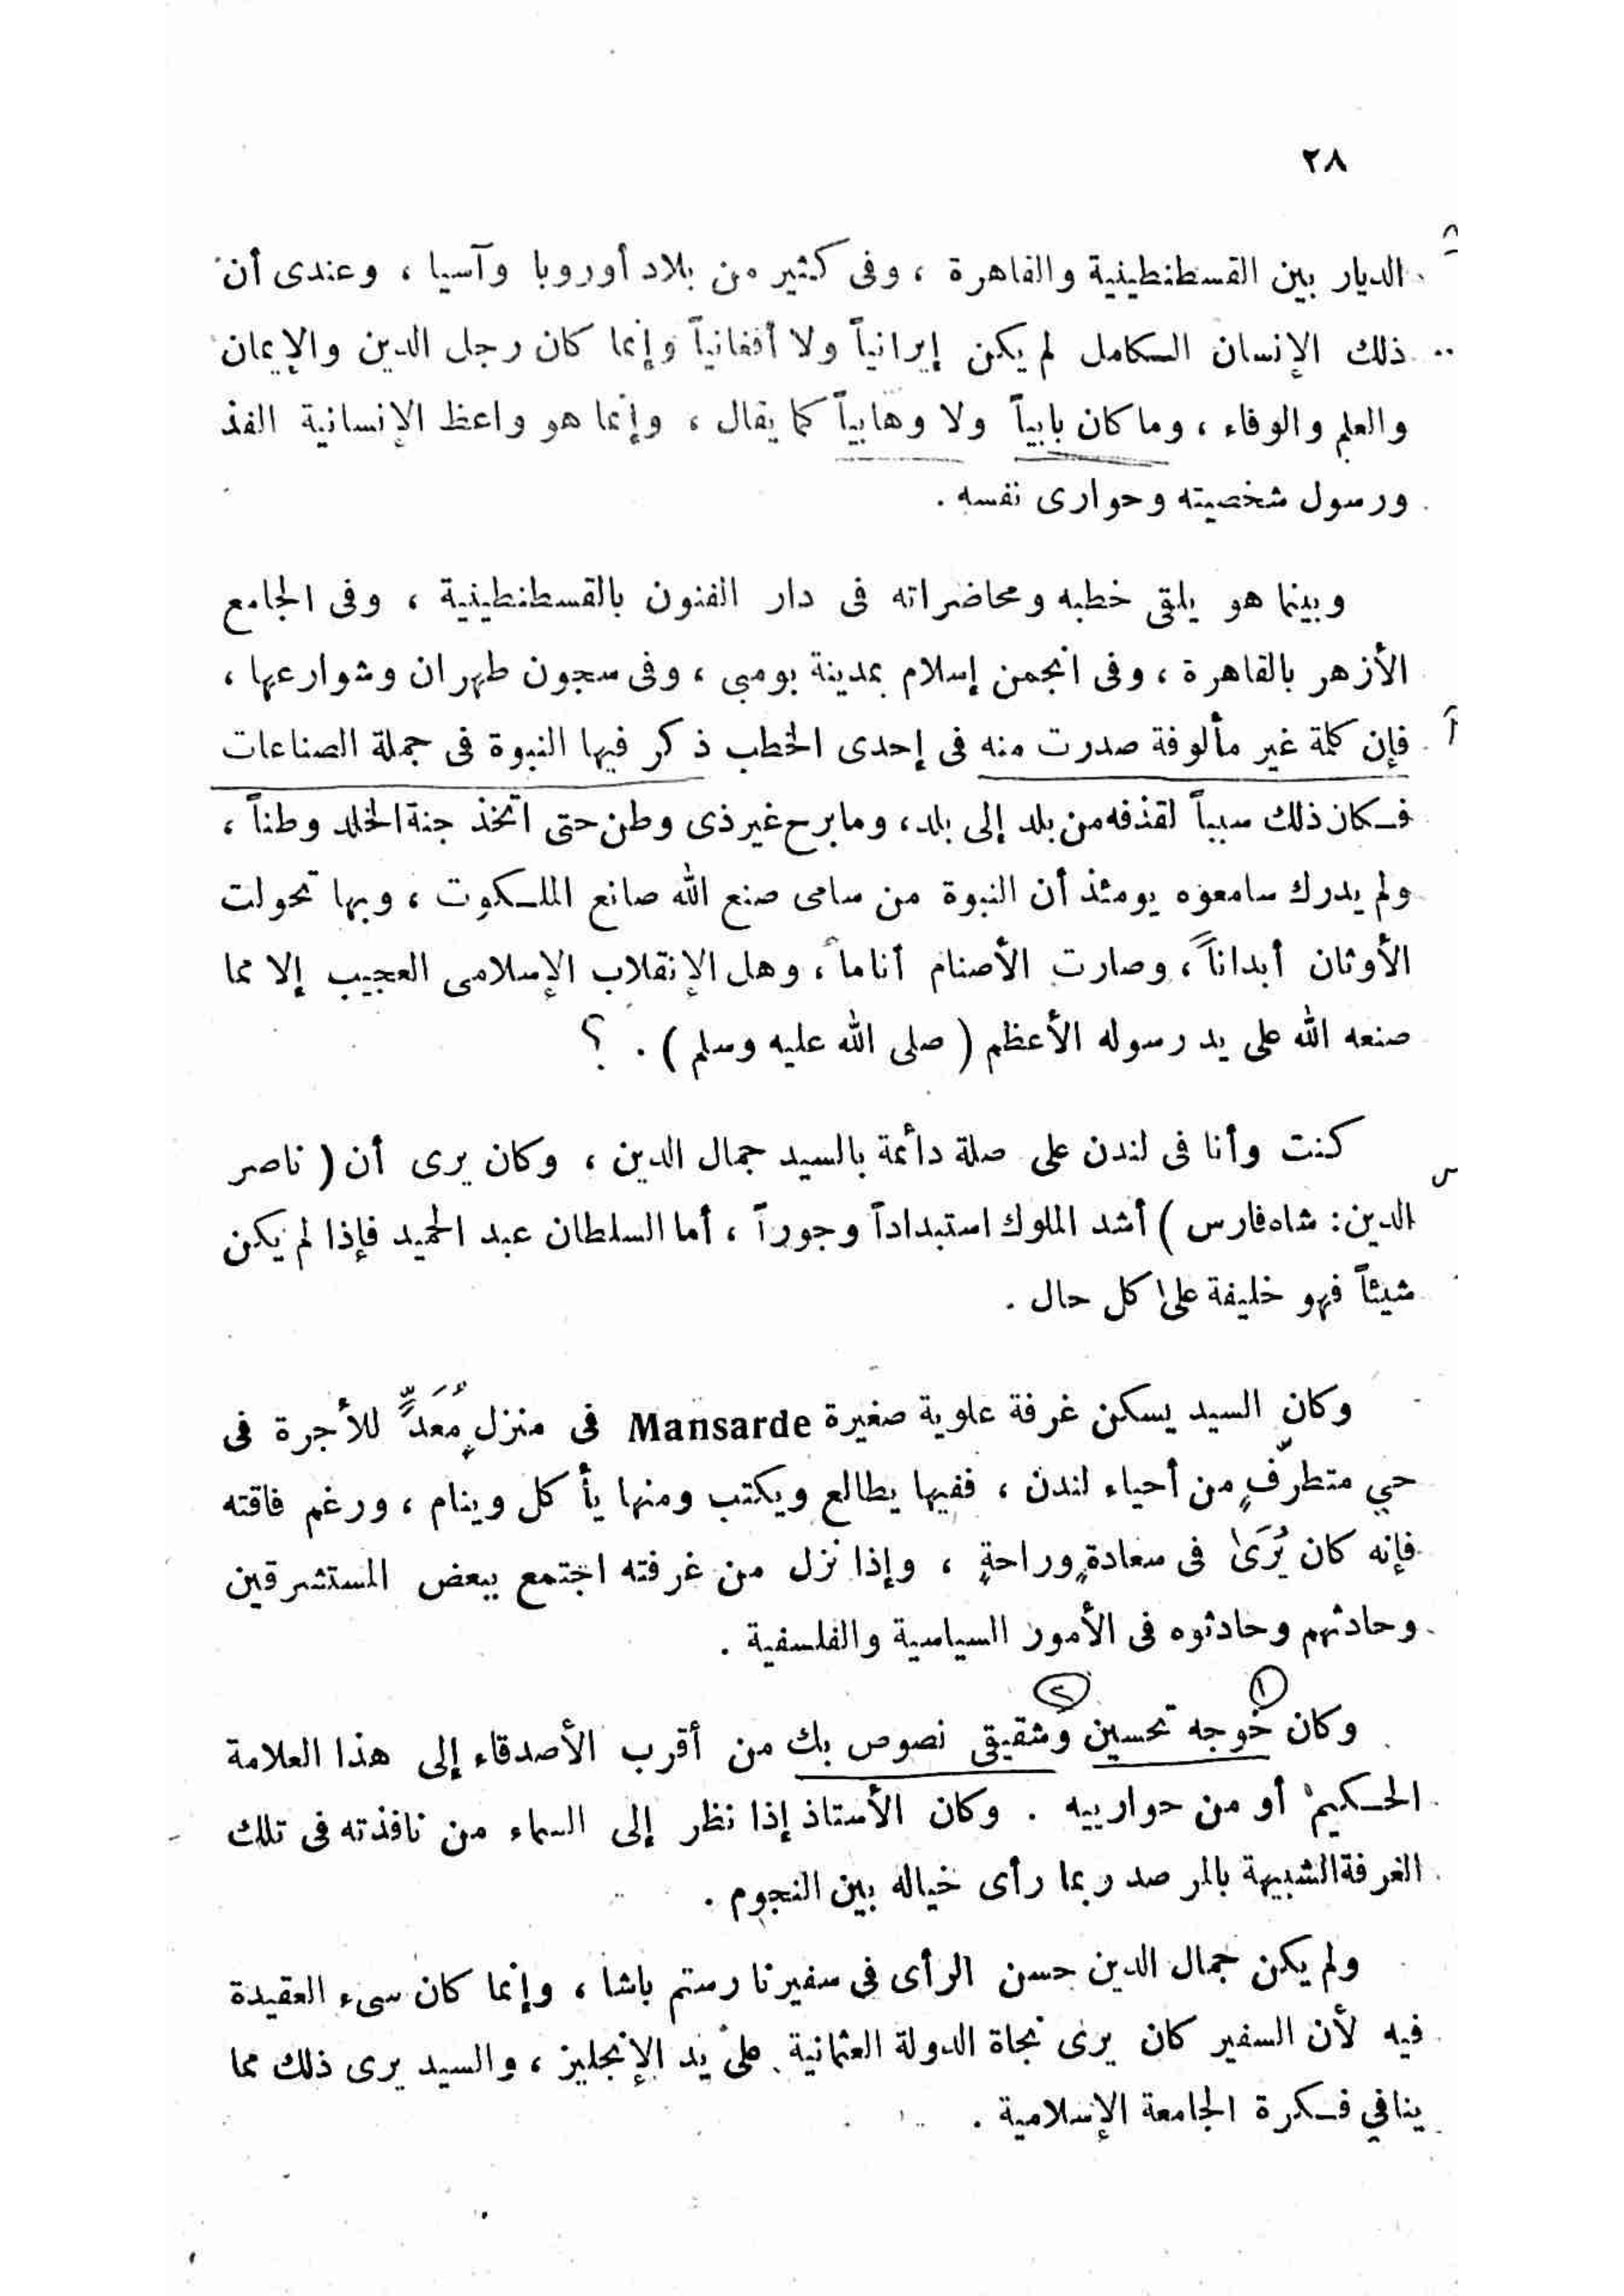 ٢٨
الديار بين القسطنطينية والقاهرة ، وفى كثير من بلاد أوروبا وآسيا ، وعندى أن
ذلك الإنسان الكامل لم يكن إيرانياً ولا أفغانياً وإنما كان رجل الدين والإيمان
والعلم والوفاء ، وما كان بابياً ولا وهابياً كما يقال ، وإنما هو واعظ الإنسانية الفذ
ورسول شخصيته وحوارى نفسه .
وبينما هو يلقى خطبه ومحاضراته فى دار الفنون بالقسطنطينية ، وفى الجامع
الأزهر بالقاهرة ، وفى انجمن إسلام بمدينة بومبى ، وفى سجون طهران وشوارعها ،
فإن كلمة غير مألوفة صدرت منه فى إحدى الخطب ذكر فيها النبوة فى جملة الصناعات
فكان ذلك سبباً لقذفه من بلد إلى بلد ، وما برح غير ذى وطن حتى اتخذ جنة الخلد وطناً ،
ولم يدرك سامعوه يومئذ أن النبوة من سامى صنع الله صانع الملكوت ، وبها تحولت
الأوثان أبداناً ، وصارت الأصنام أناماً ، وهل الإنقلاب الإسلامى العجيب إلا مما
صنعه الله على يد رسوله الأعظم ( صلى الله عليه وسلم ) . ؟
كنت وأنا فى لندن على صلة دائمة بالسيد جمال الدين ، وكان يرى أن ( ناصر
الدين : شاه فارس ) أشد الملوك استبداداً وجوراً ، أما السلطان عبد الحميد فإذا لم يكن
شيئاً فهو خليفة على كل حال .
وكان السيد يسكن غرفة علوية صغيرة Mansarde فى منزلٍ مُعَدٍّ للأجرة فى
حي متطرّفٍ من أحياء لندن ، ففيها يطالع ويكتب ومنها يأكل وينام ، ورغم فاقته
فإنه كان يُرَىٰ فى سعادةٍ وراحةٍ ، وإذا نزل من غرفته اجتمع ببعض المستشرقين
وحادثهم وحادثوه فى الأمور السياسية والفلسفية .
١ ٢
وكان خوجه تحسين وشقيقى نصوص بك من أقرب الأصدقاء إلى هذا العلامة
الحكيم أو من حوارييه . وكان الأستاذ إذا نظر إلى السماء من نافذته فى تلك
الغرفة الشبيهة بالمرصد ربما رأى خياله بين النجوم .
ولم يكن جمال الدين حسن الرأى فى سفيرنا رستم باشا ، وإنما كان سىء العقيدة
فيه لأن السفير كان يرى نجاة الدولة العثمانية على يد الإنجليز ، والسيد يرى ذلك مما
ينافي فكرة الجامعة الإسلامية .